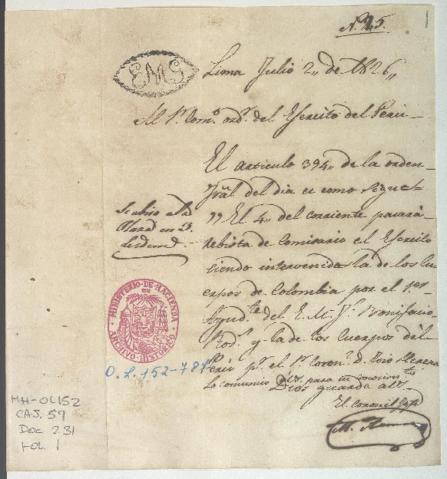 N. 25.
1
EMG
Lima Julio 2,, de 1826,,
Al Sr. Com.o ord.r del Ejercito del Peru
El articulo 394,, de la orden
Gral del dia es como sigue
,, El 4,, del corriente pasará
rebista de Comisario el Ejercito
siendo intervenida la de los Cu
erpos de Colombia por el 1er
Ayud.te del E. M. G.l Bonifacio
Rod.s y la de los Cuerpos del
Perú pr. el Sr. Coron.l D. José
Lo comunico
Dios guarde a
El Coronel
Se abisó a la
Plaza en
MINISTERIO DE HACIENDA
ARCHIVO HISTORICO
O.L. 152-781
MH-OL152
CAJ. 59
Doc 231
FOL. 1